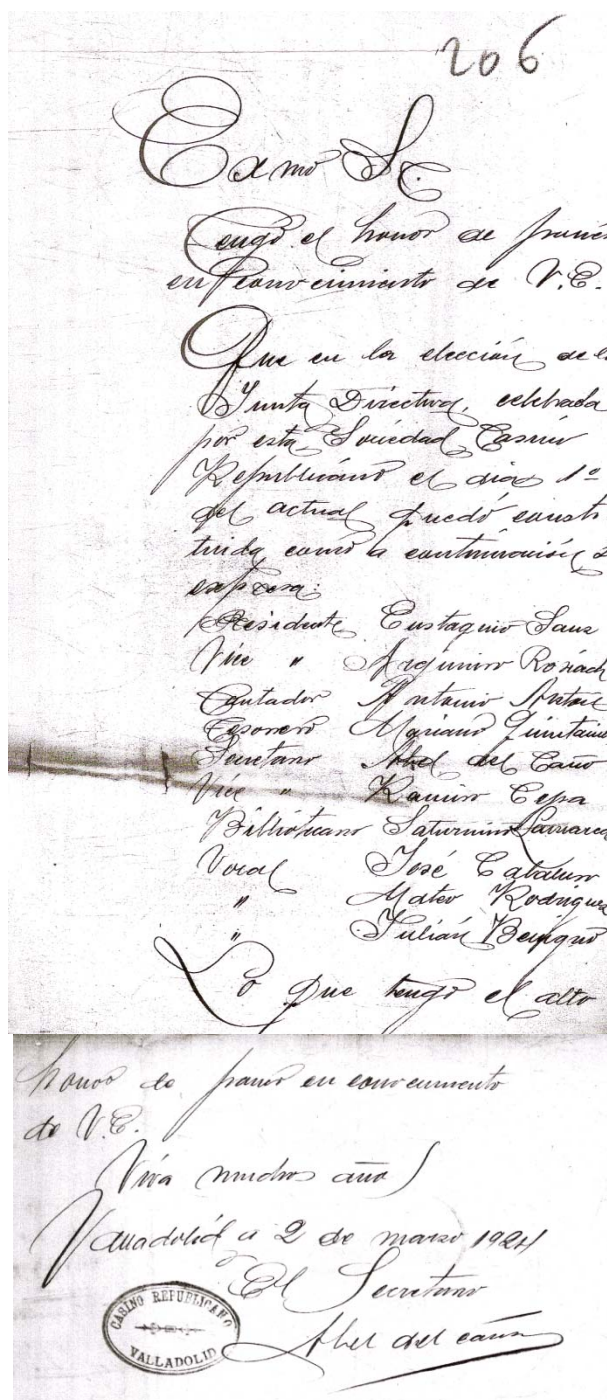 206
Exmo Sr.
Tengo el honor de poner
en conocimiento de V.E.
Que en la elección de l
Junta Directiva, celebrada
por esta Sociedad Casino
Republicano el dia 1º
del actual quedó consti
tuida como a continuación s
expresa:
Presidente Eustaquio Sanz
Vice " Argimiro
Contador Antonio
Tesorero Mariano Quintan
Secretario Abel del Caño
Vice " Ramiro Cepa
Bibliotecario Saturnino
Vocal José Catalun
" Mateo Rodriguez
" Julián Benigno
Lo que tengo el alto
honor de poner en conocimiento
de V.E.
Viva muchos años
Valladolid a 2 de marzo 1924
El Secretario
Abel del Caño
CASINO REPUBLICANO
VALLADOLID